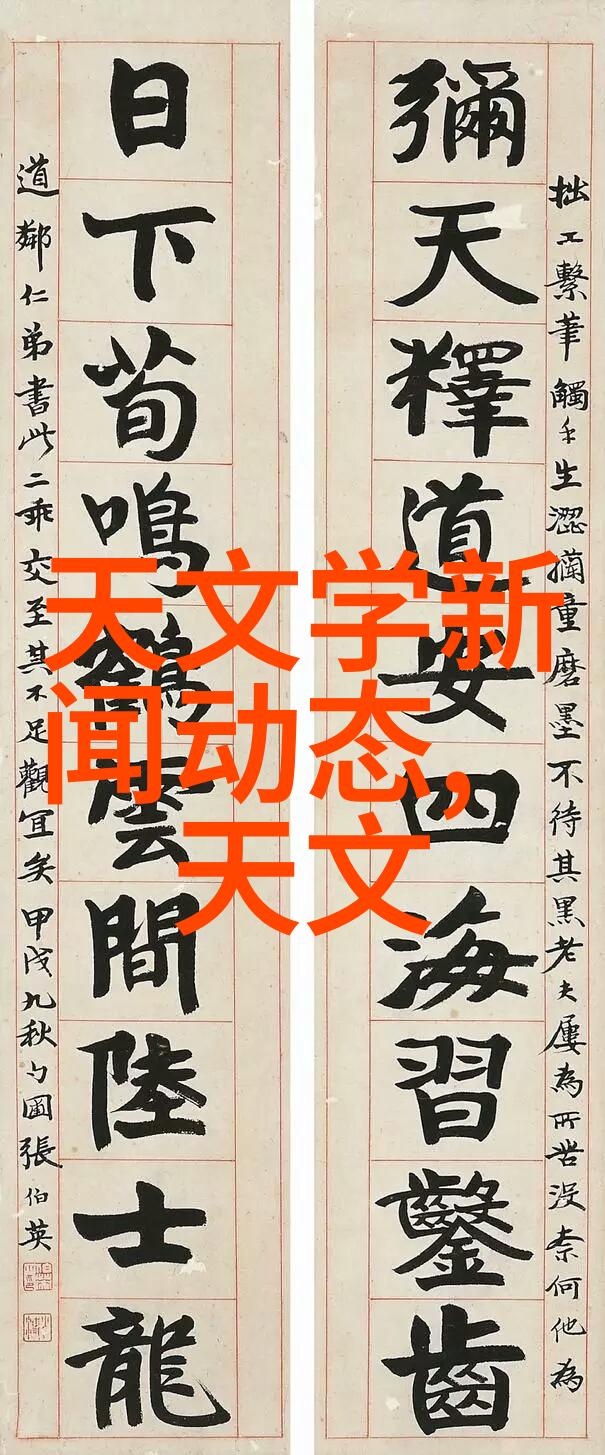 彌天釋道安四海習鑿齒
日下荀鳴鶴雲間陸士龍
拙工繫筆觸手生澀擿童磨墨不待其黑老夫屢為所苦沒柰何他為
道鄰仁弟書此二乖交至其不足觀宜矣甲戌九秋勺圃張伯英
天文学新
闻动态,
天文